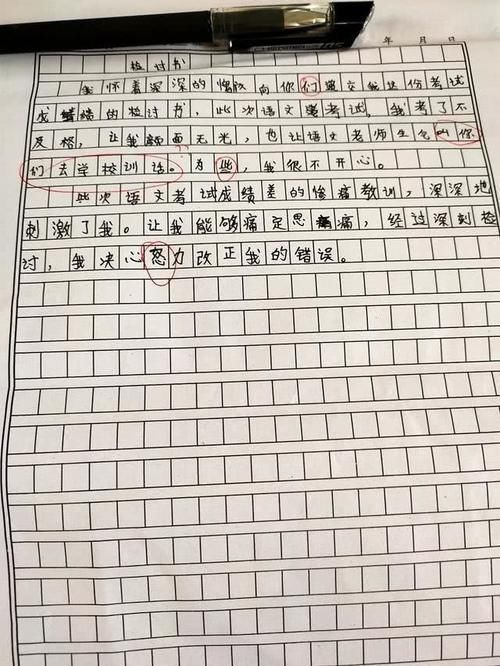 年 月 日
检讨书
我怀着深深的愧疚向你们递交我这份考试
成绩的检讨书，此次语文考试，我考了不
及格，让我颜面无光，也让语文老师生气叫你
们去学校训话。为些，我很不开心。
此次语文考试成绩差的惨痛教训，深深地
刺激了我。让我能够痛定思痛，经过深刻检
讨，我决心怒力改正我的错误。